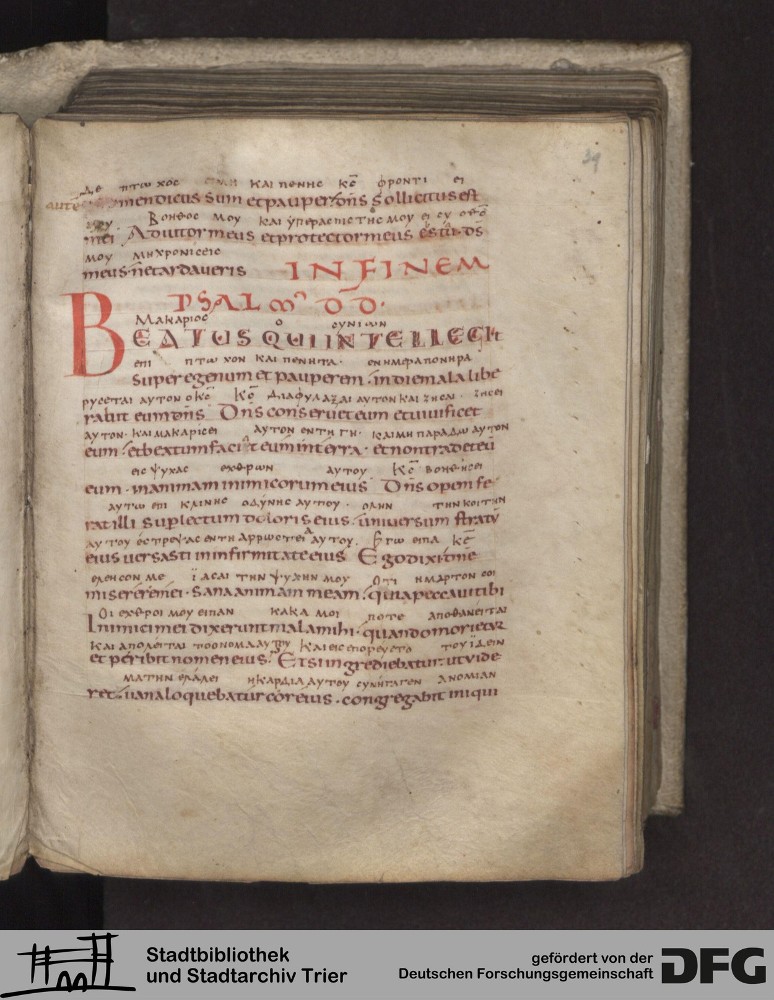 39
ΔΕ ΠΤωΧΟC ΕΙΜΙ ΚΑΙ ΠΕΝΗC Κ̅C̅ ΦΡΟΝΤΙ ΕΙ
autē mendicus sum et pauper dn̄s sollicitus est
ΜΟΥ ΒΟΗΘΟC ΜΟΥ ΚΑΙ ΥΠΕΡΑCΠΙCΤΗC ΜΟΥ ΕΙ CΥ
mei Adiutor meus et protector meus es tu d̄s
ΜΟΥ ΜΗ ΧΡΟΝΙCΕΙC
meus ne tardaveris INFINEM
PSALM DD
ΜΑΚΑΡΙΟC Ο CΥΝΙωΝ
BEATUS QUI INTELLEGIt
ΕΠΙ ΠΤωΧΟΝ ΚΑΙ ΠΕΝΗΤΑ · ΕΝ ΗΜΕΡΑ ΠΟΝΗΡΑ
super egenum et pauperem · in die mala libe
ΡΥCΕΤΑΙ ΑΥΤΟΝ Ο Κ̅C̅ Κ̅C̅ ΔΙΑΦΥΛΑΞΑΙ ΑΥΤΟΝ ΚΑΙ ΖΗCΑΙ · ΖΗCΕΙ
rabit eum dn̄s Dn̄s conservet eum et vivificet
ΑΥΤΟΝ · ΚΑΙ ΜΑΚΑΡΙCΕΙ ΑΥΤΟΝ ΕΝ ΤΗ ΓΗ · ΚΑΙ ΜΗ ΠΑΡΑΔω ΑΥΤΟΝ
eum · et beatum faciat eum in terra · et non tradet eū
ΕΙC ΨΥΧΑC ΕΧΘΡωΝ ΑΥΤΟΥ Κ̅C̅ ΒΟΗΘΗCΕΙ
eum · in animam inimicorum eius Dn̄s opem fe
ΑΥΤω ΕΠΙ ΚΛΙΝΗC ΟΔΥΝΗC ΑΥΤΟΥ · ΟΛΗΝ ΤΗΝ ΚΟΙΤΗΝ
rat illi sup lectum doloris eius · universum stratū
ΑΥΤΟΥ ΕCΤΡΕΨΑC ΕΝ ΤΗ ΑΡΡωCΤΕΙΑ ΑΥΤΟΥ · ΕΓω ΕΙΠΑ Κ̅Ε̅
eius versasti in infirmitate eius Ego dixi dn̄e
ΕΛΕΗCΟΝ ΜΕ ΙΑCΑΙ ΤΗΝ ΨΥΧΗΝ ΜΟΥ ΟΤΙ ΗΜΑΡΤΟΝ CΟΙ
miserere mei · Sana animam meam · quia peccavi tibi
ΟΙ ΕΧΘΡΟΙ ΜΟΥ ΕΙΠΑΝ ΚΑΚΑ ΜΟΙ ΠΟΤΕ ΑΠΟΘΑΝΕΙΤΑΙ
Inimici mei dixerunt mala mihi · quando morietur
ΚΑΙ ΑΠΟΛΕΙΤΑΙ ΤΟ ΟΝΟΜΑ ΑΥΤΟΥ ΚΑΙ ΕΙCΕΠΟΡΕΥΕΤΟ ΤΟΥ ΙΔΕΙΝ
et peribit nomen eius Et si ingrediebatur ut vide
ΜΑΤΗΝ ΕΛΑΛΕΙ Η ΚΑΡΔΙΑ ΑΥΤΟΥ CΥΝΗΓΑΓΕΝ ΑΝΟΜΙΑΝ
ret · vana loquebatur cor eius · congregabit iniqui
Stadtbibliothek
und Stadtarchiv Trier
gefördert von der
Deutschen Forschungsgemeinschaft DFG